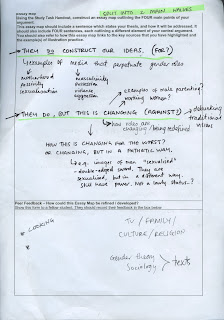 SPLIT INTO 2 MAIN HALVES
essay map
Using the Study Task Handout, construct an essay map outlining the FOUR main points of your argument.
This essay map should include a sentence which states your thesis, and how it will be addressed. It should also include FOUR sentences, each outlining a different element of your central argument.
You should also refer to how this essay map links to the key sources that you have highlighted and the example(s) of illustration practice.
→ THEY DO CONSTRUCT OUR IDEAS, (FOR?)
examples of media that perpetuate gender roles
motherhood
passivity
sexualisation
masculinity
aggression
→ examples of male parenting?
working women?
→ THEY DO, BUT THIS IS CHANGING (AGAINST?)
debunking traditional views
how roles are changing / being redefined
HOW THIS IS CHANGING FOR THE WORST?
OR CHANGING, BUT IN A PATHETIC WAY.
e.g. images of men "sexualised"
- double-edged sword. They are sexualised, but in a different way. Still have power. Not a lowly status..?
Peer Feedback – How could this Essay Map be refined / developed?
Show this form to a fellow student. They should record their feedback in the box below
* LOOKING
TV / FAMILY /
CULTURE / RELIGION
Gender theory
Sociology
> texts